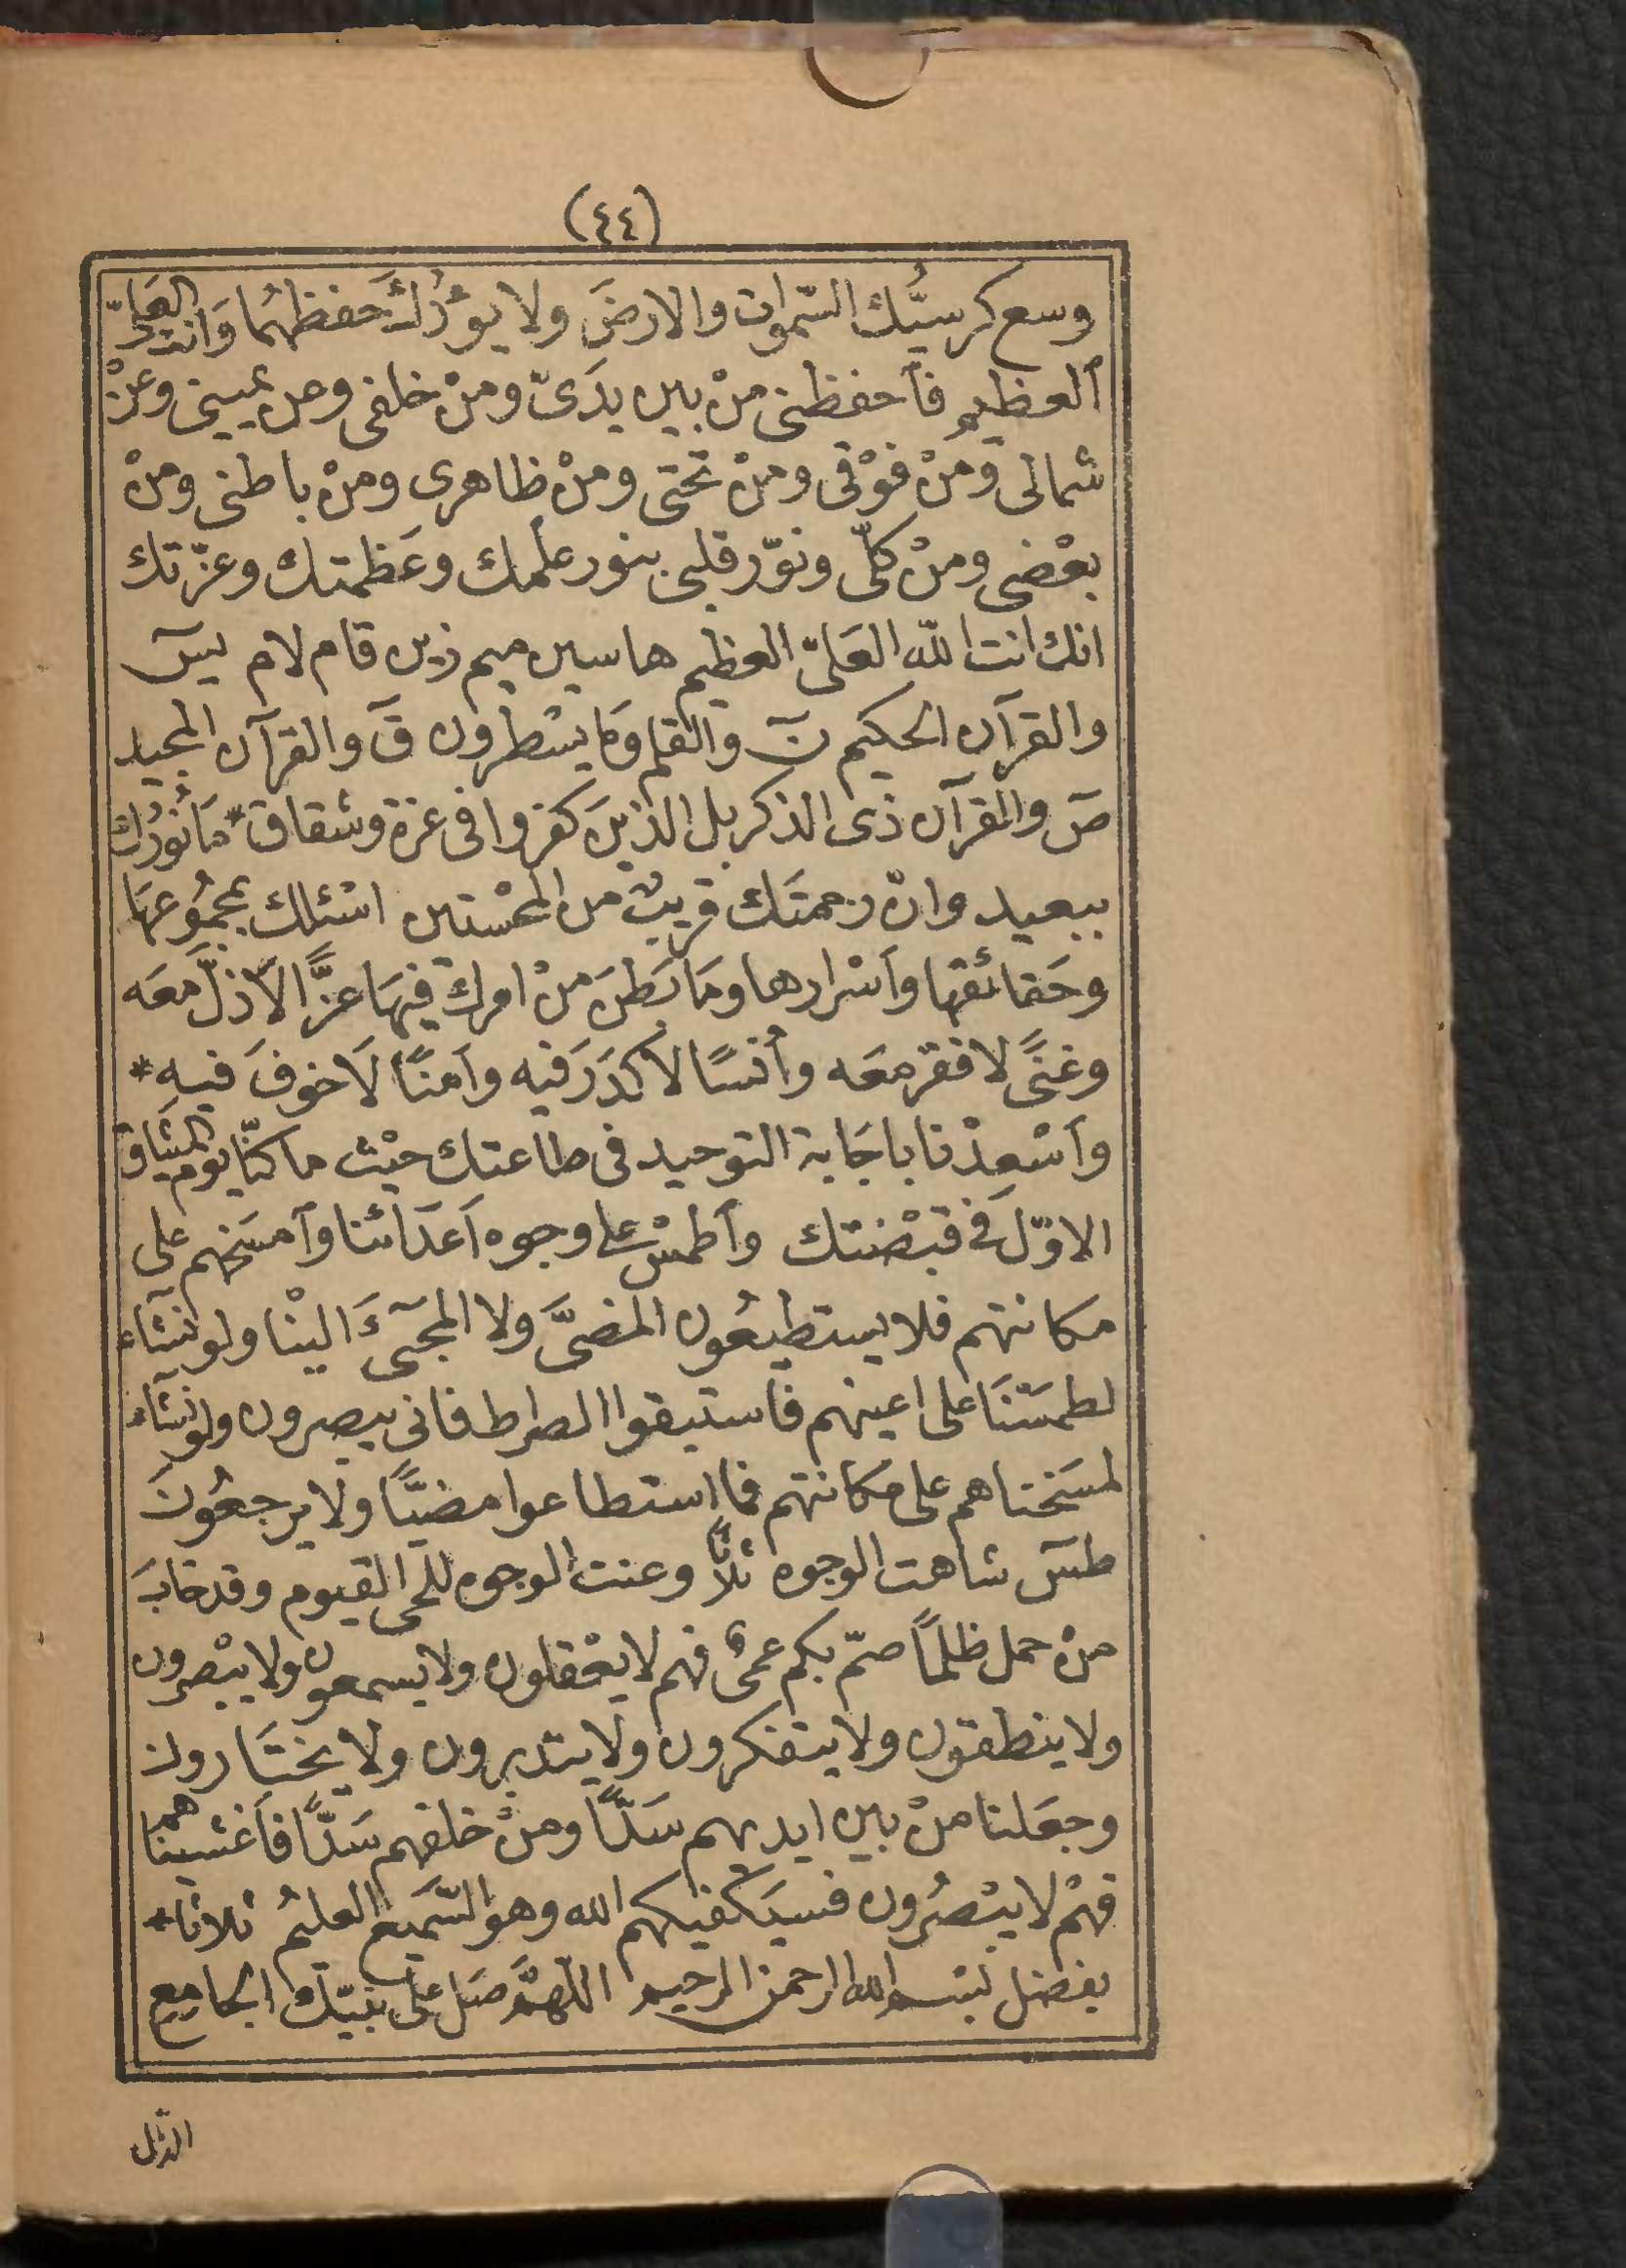 (٤٤)
وسع كرسيُّك السّموات والارضَ ولا يؤُدُك حفظهُما وَانت العَلىّ
ٱلعظيم فٱحفظنى منْ بين يدَىّ ومنْ خلفى وعن يمينى وعنْ
شمالى ومنْ فوْقى ومنْ تحتى ومنْ ظاهرى ومنْ باطنى ومنْ
بعْضى ومنْ كلّى ونوّر قلبى بنور علمك وعَظمتك وعزّتك
انك انت اللّه العَلىّ العظيم ها سين ميم زين قام لام يسٓ
والقرآن الحكيم نٓ والقلم وَمَا يسْطرون قٓ والقرآن المجيد
صٓ والقرآن ذى الذكر بل الذينَ كفروا فى عزة وشقاق * مَا نُورُك
ببعيد وانّ رحمتَك قريبٌ من المحْسنين اسْئلك بمجمُوعهَا
وحَقائقها وأسْرارها ومَا بَطنَ منْ امرك فيهَا عزًّا لَاذلّ معَه
وغنًى لا فقر معَه وأُنسًا لاكدَرَ فيه وآمنًا لَا خوفَ فيهِ *
وَأسْعدْنا باجَابة التوحيد فى طاعتك حيْث ما كنّا يوم الميثَاق
الاوّل فى قبْضتك وٱطمسْ على وجوه أعدَائنا وٱمسَخهم على
مكانتهم فلا يستطيعُون المضىَّ ولا المجىٓءَ اليْنا ولو نشٓاء
لطمسْنَا على اعينهم فاستبقوا الصراط فانى يبصرون ولو نشٓاء
لمسَخناهم على مكانتهم فما استطاعوا مضيًّا ولا يرجعُونَ
طسٓ شاهت الوجوه ثلاثًا وعنت الوجوه للحى القيوم وقد خابَ
منْ حمل ظلمًا صمّ بكم عمىٌ فهم لا يعْقلون ولا يسمعون ولا يبْصرون
ولا ينطقون ولا يتفكرون ولا يتدبرون ولا يختَارون
وجعَلنا منْ بين ايديهم سَدًّا ومنْ خلفهم سَدًّا فأغشيناهم
فهُمْ لا يبْصرُون فسيَكفيكهم الله وهو السَّميع العليمُ ثلاثا *
بفضل بسْم الله الرحمن الرحيم اللّهمَّ صَل على نبيّك الجامع
الدّال